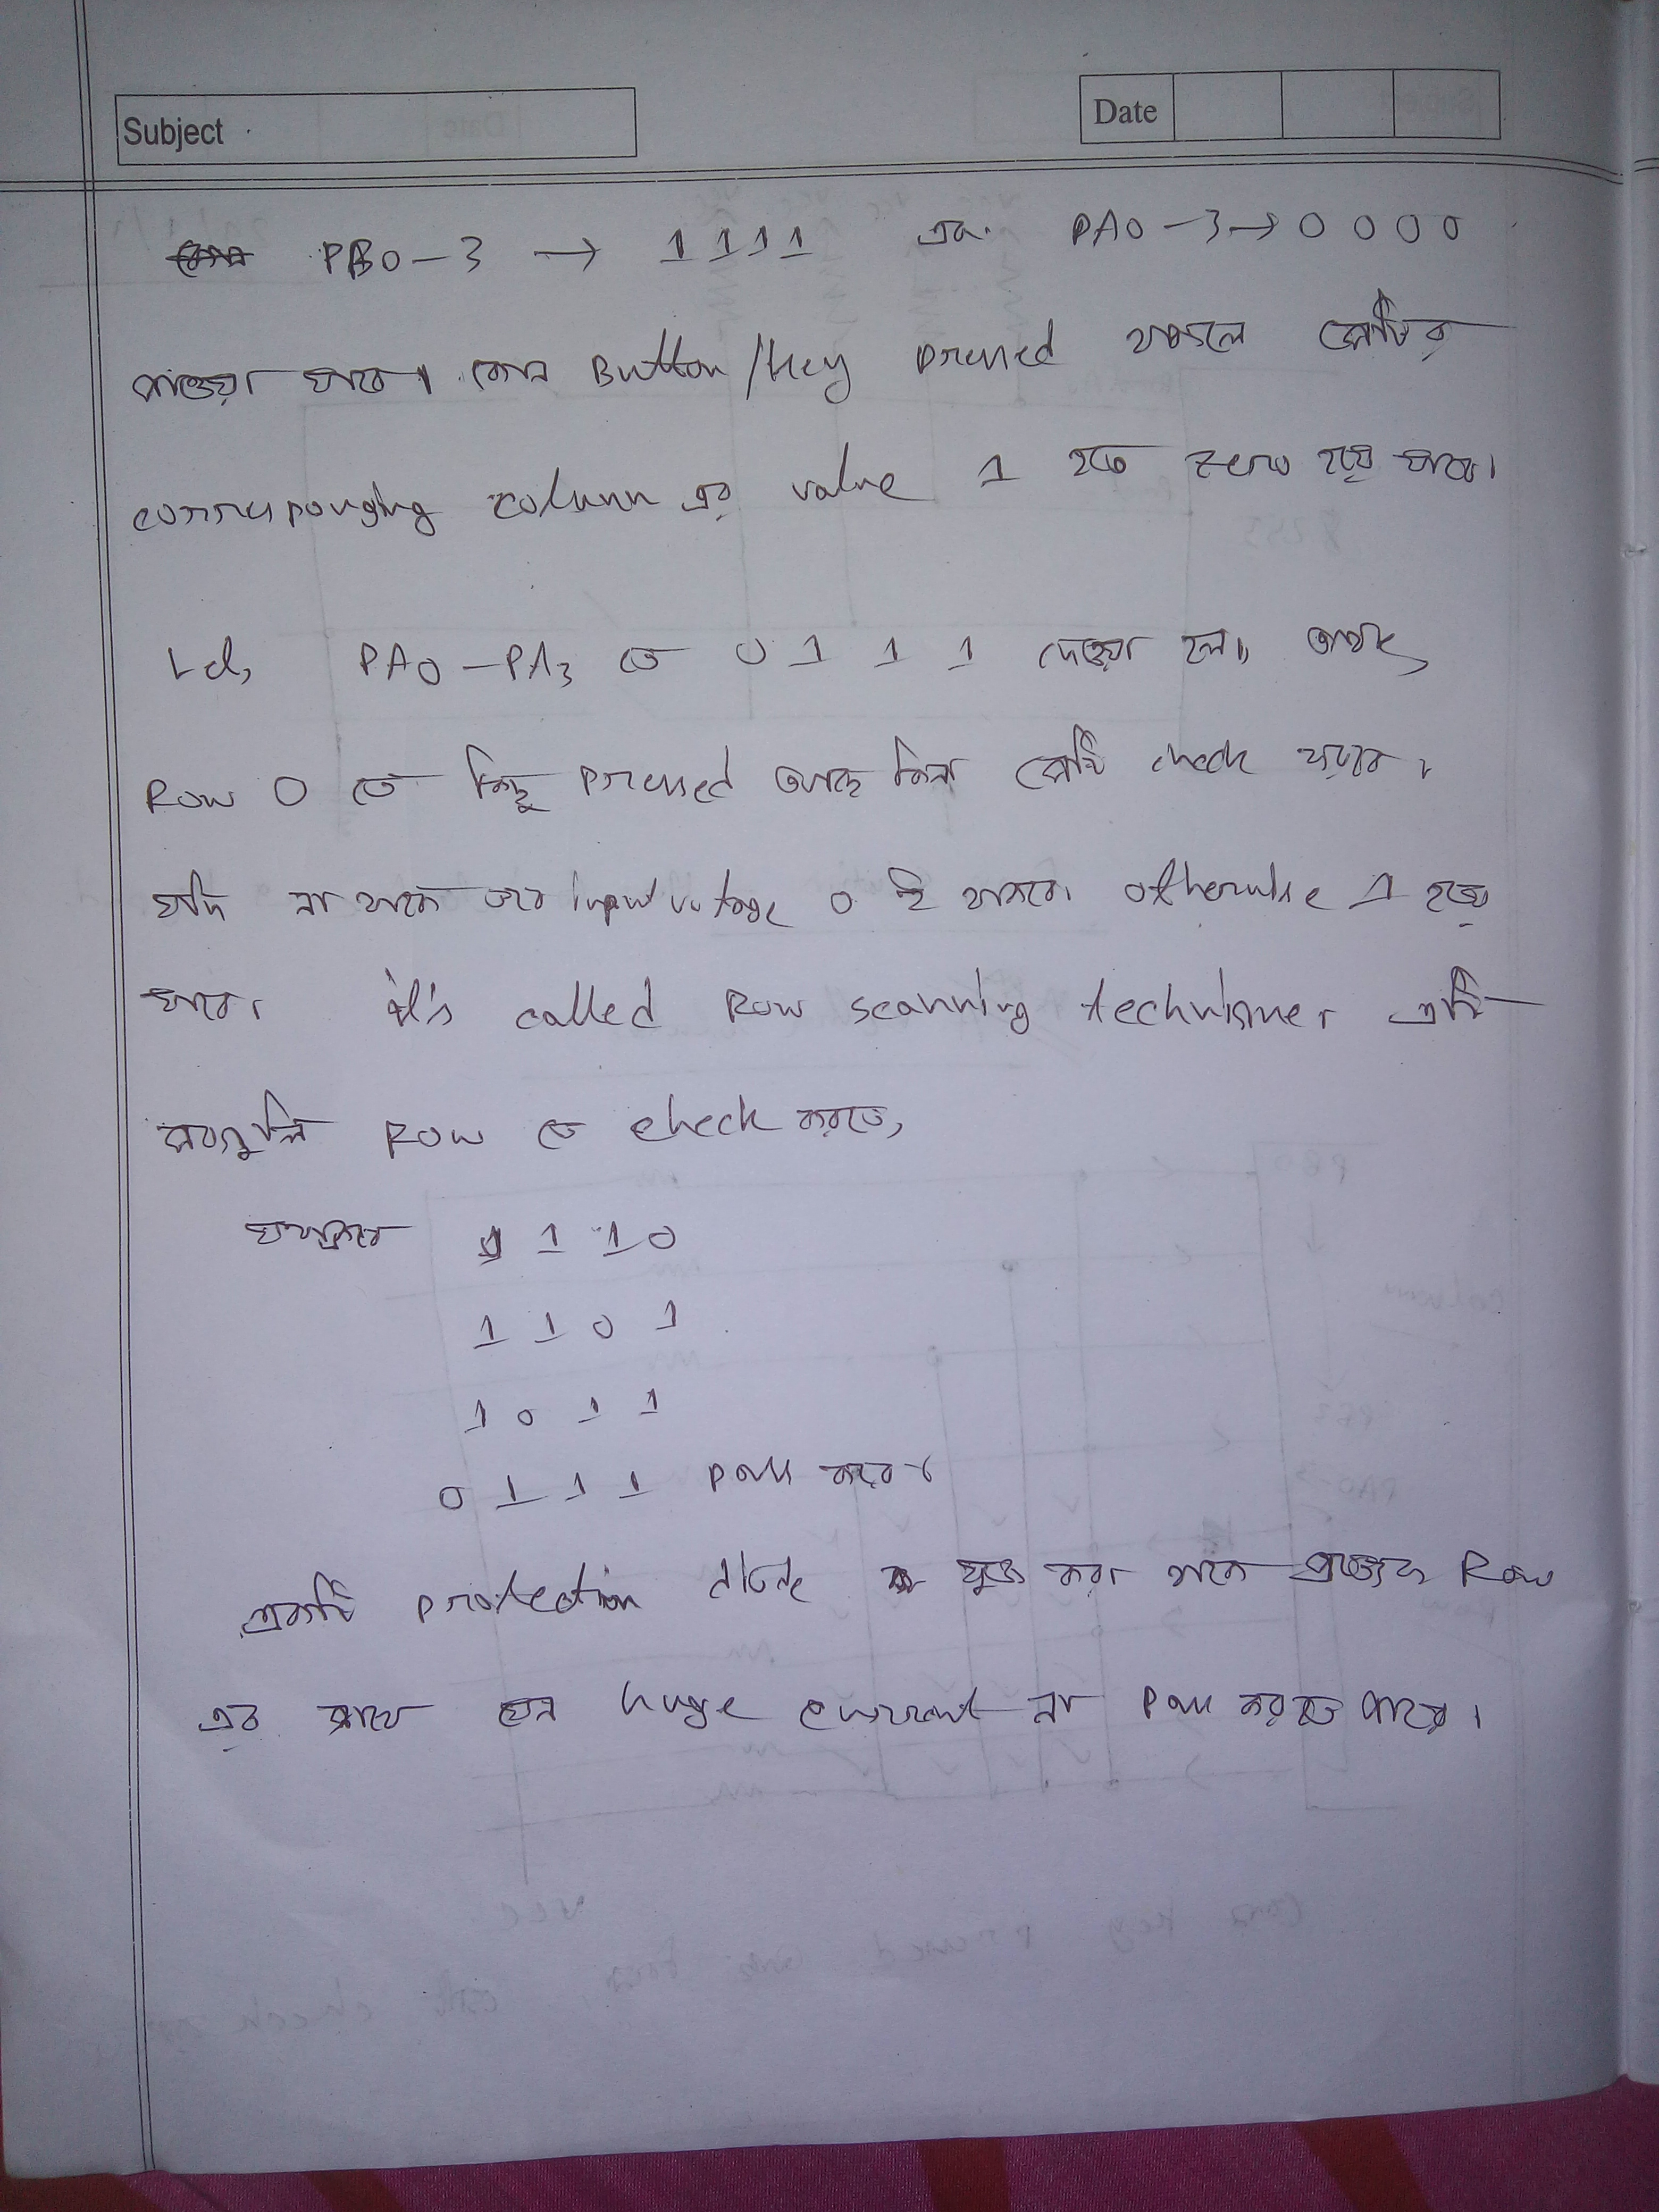 Subject
Date
PB0-3 → 1 1 1 1 এবং PA0-3 → 0 0 0 0
পাওয়া যাবে। কোন Button/Key pressed থাকলে সেটির
corresponging column এর value 1 হতে zero হয়ে যাবে।
Let, PA0-PA3 তে 0 1 1 1 দেওয়া হল। অর্থাৎ,
Row 0 তে কিছু pressed আছে কিনা সেটি check করবে।
যদি না থাকে তবে input voltage 0 ই থাকবে। otherwise 1 হয়ে
যাবে। it's called Row scanning technique। এটি
সবগুলি Row তে check করতে,
যথাক্রমে 1 1 1 0
1 1 0 1
1 0 1 1
0 1 1 1 pass করবে।
একটি protection diode যুক্ত করা থাকে প্রত্যেক Row
এর সাথে যেন huge current না pass করতে পারে।